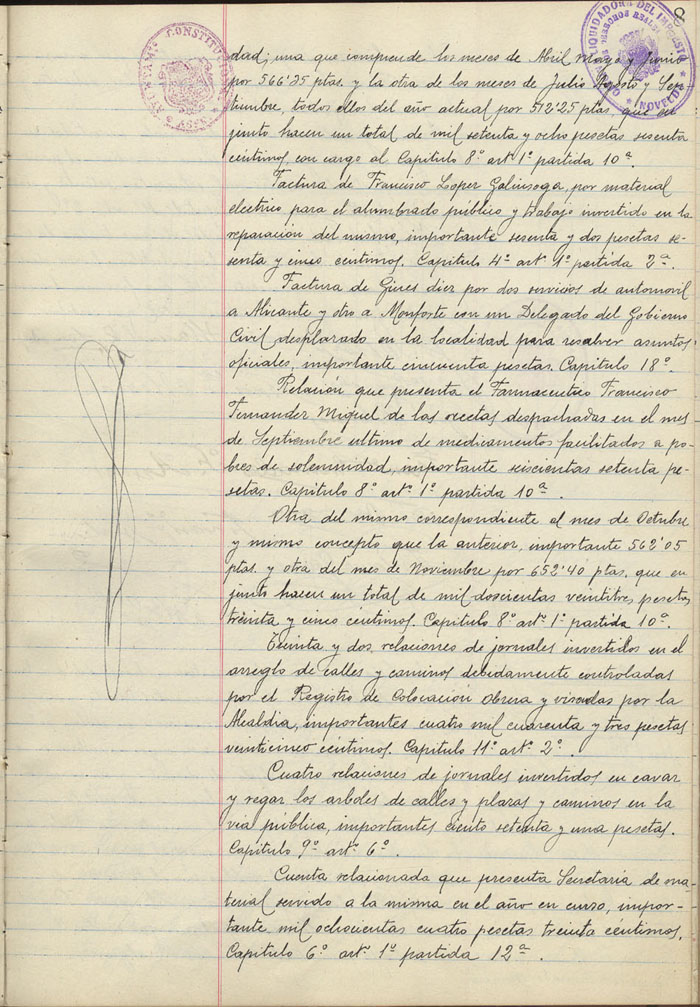 8
AYUNTAMTO CONSTITUCIONAL
ASPE
LIQUIDADORA DEL IMPUESTO
DERECHOS REALES
NOVELDA
dad; una que comprende los meses de Abril Mayo y Junio
por 566'35 ptas. y la otra de los meses de Julio Agosto y Sep-
tiembre, todos ellos del año actual por 512'25 ptas, que en
junto hacen un total de mil setenta y ocho pesetas sesenta
céntimos con cargo al Capítulo 8º artº 1º partida 10ª.
Factura de Francisco Lopez Galinsoga, por material
electrico para el alumbrado público y trabajo invertido en la
reparación del mismo, importante sesenta y dos pesetas se-
senta y cinco céntimos. Capitulo 4º artº 1º partida 2ª.
Factura de Gines diez por dos servicios de automovil
a Alicante y otro a Monforte con un Delegado del Gobierno
Civil desplazado en la localidad para resolver asuntos
oficiales, importante cincuenta pesetas. Capitulo 18º.
Relación que presenta el Farmaceutico Francisco
Fernandez Miquel de las recetas despachadas en el mes
de Septiembre ultimo de medicamentos facilitados a po-
bres de solemnidad, importante seiscientas setenta pe-
setas. Capitulo 8º artº 1º partida 10ª.
Otra del mismo correspondiente al mes de Octubre
y mismo concepto que la anterior, importante 562'05
ptas. y otra del mes de Noviembre por 652'40 ptas. que en
junto hacen un total de mil doscientas veintitres pesetas
treinta y cinco céntimos. Capitulo 8º artº 1º partida 10ª.
Treinta y dos relaciones de jornales invertidos en el
arreglo de calles y caminos debidamente controladas
por el Registro de Colocación Obrera y visadas por la
Alcaldia, importantes cuatro mil cuarenta y tres pesetas
veinticinco céntimos. Capitulo 11º artº 2º.
Cuatro relaciones de jornales invertidos en cavar
y regar los arboles de calles y plazas y caminos en la
via pública, importantes ciento setenta y una pesetas.
Capitulo 9º artº 6º.
Cuenta relacionada que presenta Secretaria de ma-
terial servido a la misma en el año en curso, impor-
tante mil ochocientas cuatro pesetas treinta céntimos.
Capitulo 6º artº 1º partida 12ª.